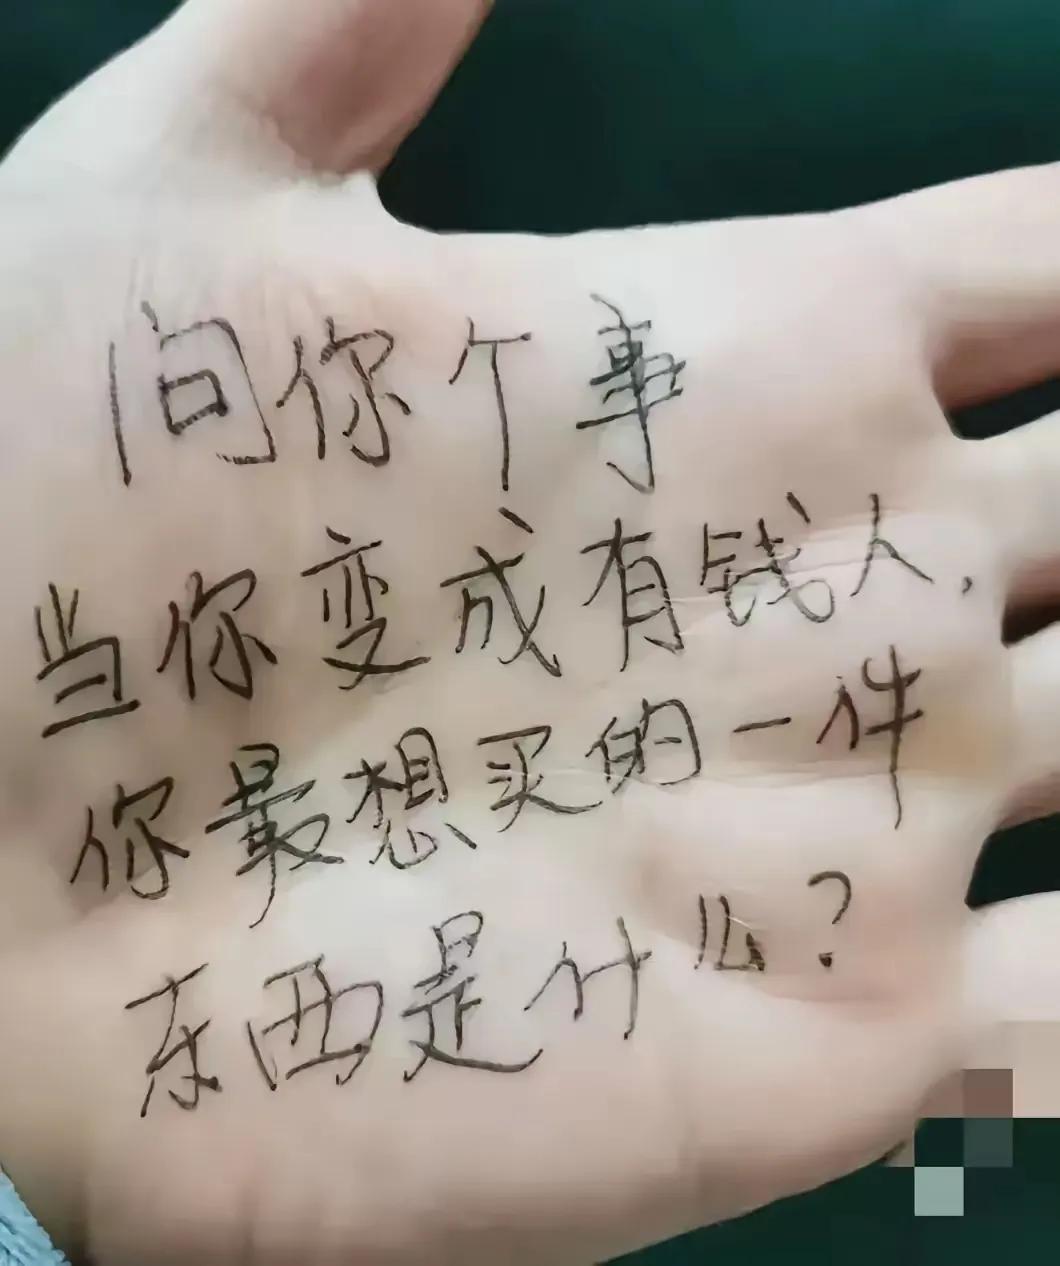 问你个事
当你变成有钱人,
你最想买的一件
东西是什么?